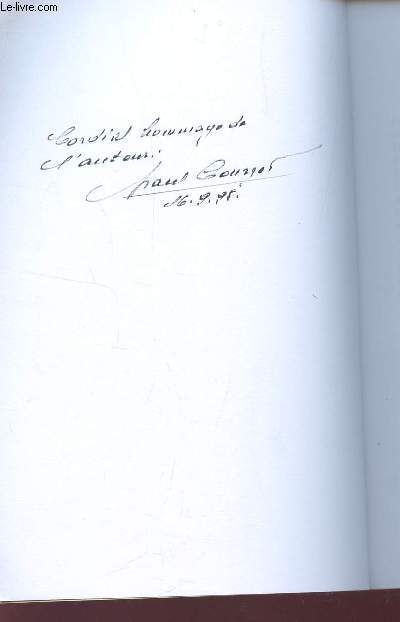 © Le-livre.com
Cordial hommage de
l'auteur.
Paul
16.9.98.